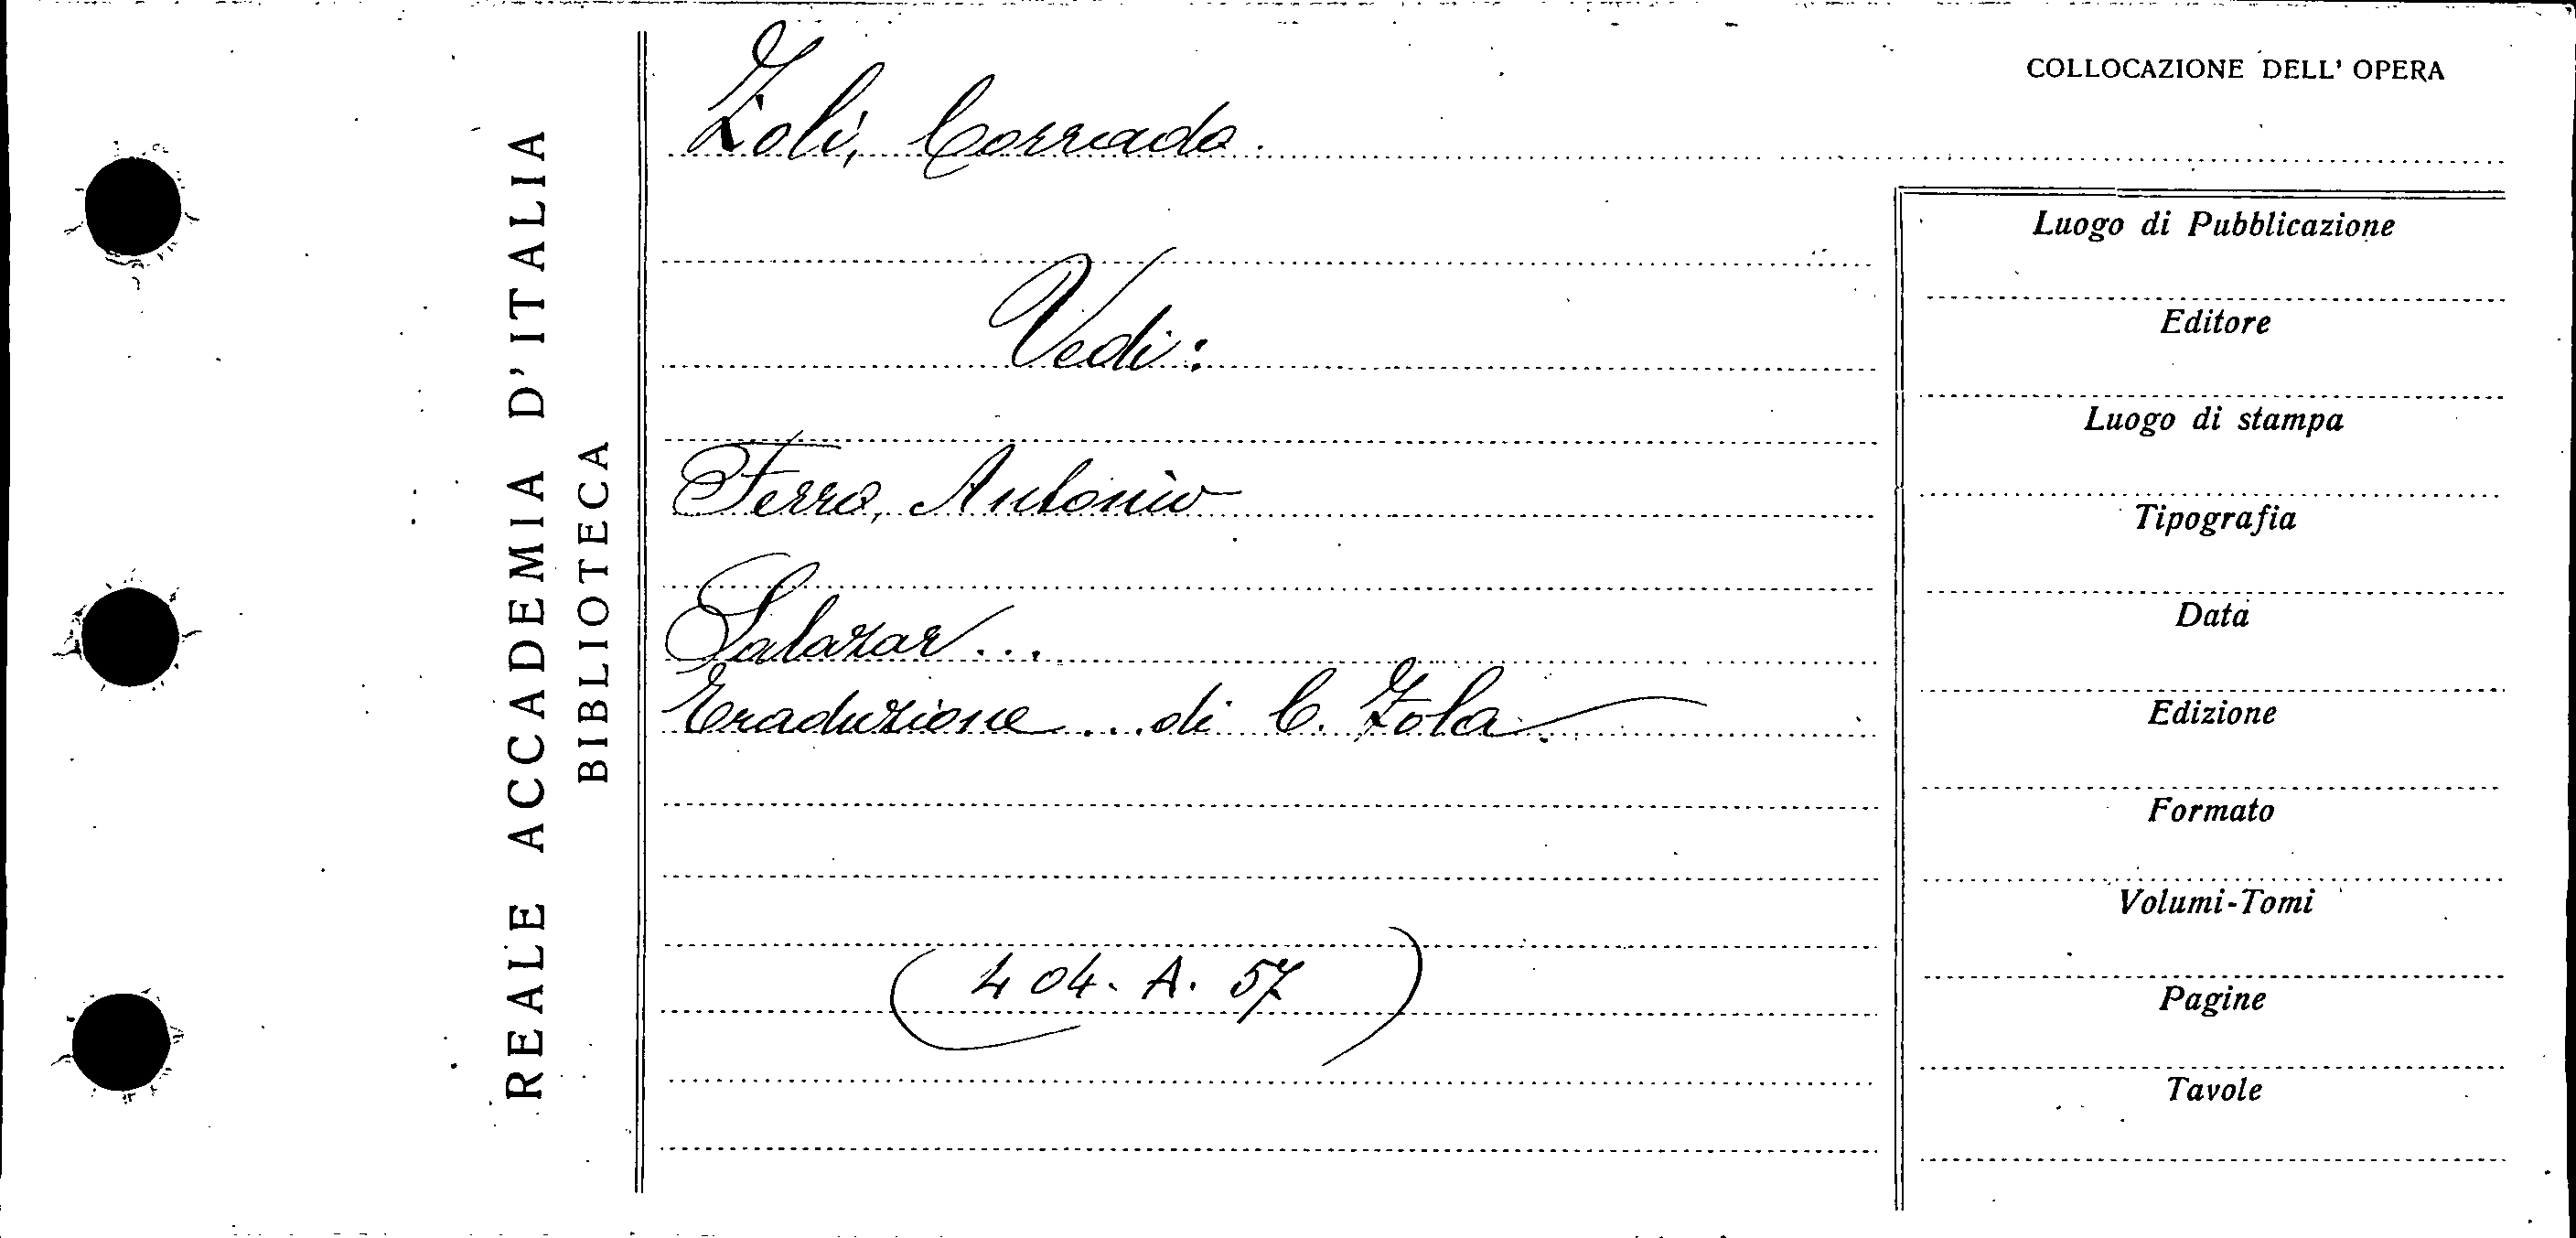 REALE ACCADEMIA D'ITALIA
BIBLIOTECA
COLLOCAZIONE DELL' OPERA
Zoli, Corrado.
Vedi:
Ferro, Antonio
Salazar...
Traduzione ... di C. Zola.
(404. A. 57)
Luogo di Pubblicazione
Editore
Luogo di stampa
Tipografia
Data
Edizione
Formato
Volumi-Tomi
Pagine
Tavole